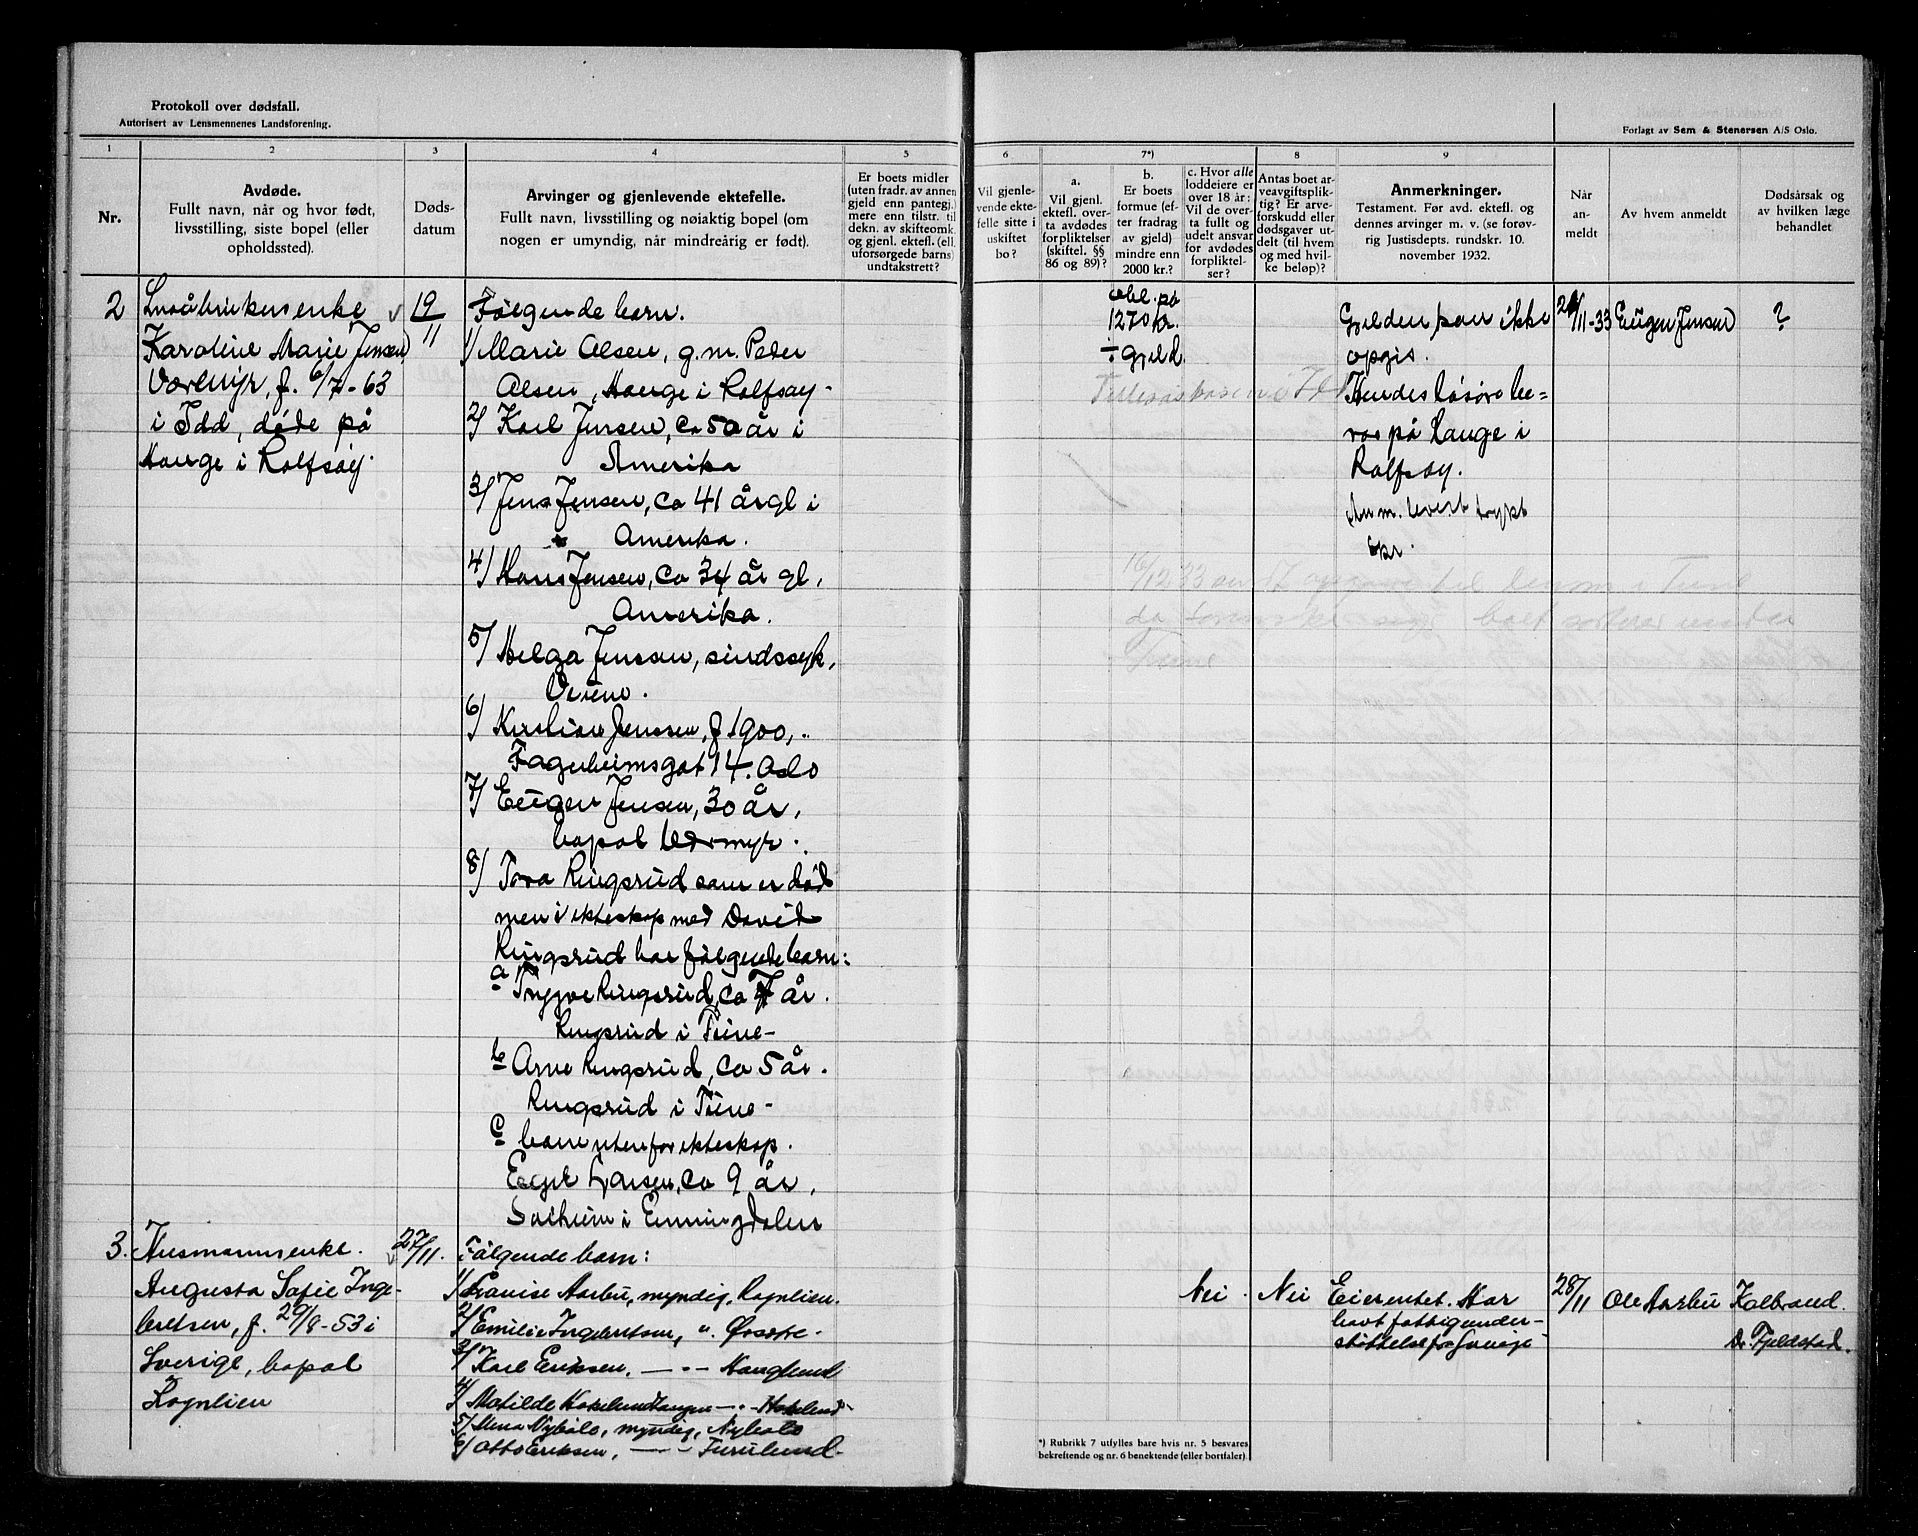 Protokoll over dødsfall.
Autorisert av Lensmennenes Landsforening.
Forlagt av Sem & Stenersen A/S Oslo.
1
2
3
4
5
6
7*)
8
9
Nr.
Avdøde.
Fullt navn, når og hvor født,
livsstilling, siste bopel (eller
opholdssted).
Døds-
datum
Arvinger og gjenlevende ektefelle.
Fullt navn, livsstilling og nøiaktig bopel (om
nogen er umyndig, når mindreårig er født).
Er boets midler
(uten fradr. av annen
gjeld enn pantegj.)
mere enn tilstr. til
dekn. av skifteomk.
og gjenl. ektef.s (ell.
uforsørgede barns)
undtakstrett?
Vil gjenle-
vende ekte-
felle sitte i
uskiftet
bo?
a.
Vil gjenl.
ektefl. over-
ta avdødes
forpliktelser
(skiftel. §§
86 og 89)?
b.
Er boets
formue (ef-
ter fradrag
av gjeld)
mindre enn
2000 kr.?
c. Hvor alle
loddeiere er
over 18 år:
Vil de over-
ta fullt og
udelt ansvar
for avdødes
forpliktel-
ser?
Antas boet ar-
veavgiftsplik-
tig? Er arve-
forskudd eller
dødsgaver ut-
delt (til hvem
og med hvil-
ke beløp)?
Anmerkninger.
Testament. Før avd. ektef. og
dennes arvinger m. v. (se forøv-
rig Justisdepts. rundskr. 10.
november 1932.
Når
an-
meldt
Av hvem anmeldt
Dødsårsak og
av hvilken læge
behandlet
2
Småbrukerenke
Karoline Marie Jensen
Vormyr, f. 6/7-63
i Idd, døde på
Hauge i Rolfsøy.
19/11
Følgende barn.
1/ Marie Olsen, g.m. Peder
Olsen, Hauge i Rolfsøy.
2/ Karl Jensen, ca 50 år i
Amerika
3/ Jens Jensen, ca 41 år gl i
Amerika.
4/ Hans Jensen, ca 34 år gl,
Amerika.
5/ Helga Jensen, sindssyk,
6/ Kristian Jensen, f 1900,
Fagerheimsgat 14. Oslo
7/ Eugen Jensen, 30 år,
bopæl Vormyr.
8/ Tora Ringsrud som er død
men i ekteskap med David
Ringsrud har følgende barn:
a Tryggve Ringsrud, ca 7 år.
Ringsrud i Tune-
b Arne Ringsrud, ca 5 år.
Ringsrud i Tune-
c barn utenfor ekteskap.
Larsen, ca 9 år,
Solheim i Enningdalen
1270 kr.
÷ gjeld.
Gjelden kan ikke
opgis.
Hendes løsøre be-
ros på Hauge i
Rolfsøy.
24/11-33
Eugen Jensen
?
16/12 33
Tune
3.
Husmannsenke.
Augusta Sofie Inge-
bretsen, f. 29/8-53 i
Sverige, bopæl
Rognlien
27/11.
Følgende barn:
1/ Lovise Aarbu, myndig, Rognlien.
2/ Emilie Ingebretsen, "
3/ Karl Eriksen, — " —
4/ Matilde
5/ Nybølo, myndig, Nybølo
6/ Otto Eriksen, — " — Furulund.
Nei.
Nei
Eier intet. Har
havt fattigunder-
støttelse fra Sverige
28/11
Ole Aarbu
Kolbrand.
Dr. Fjeldstad.
*) Rubrikk 7 utfylles bare hvis nr. 5 besvares
bekreftende og nr. 6 benektende (eller bortfaler)